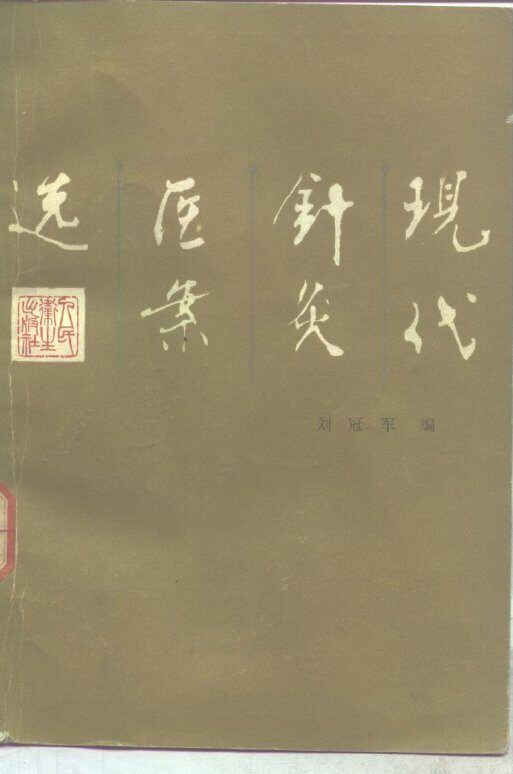 現代
針灸
医案
选
人民
衛生
出版社
刘冠军 编